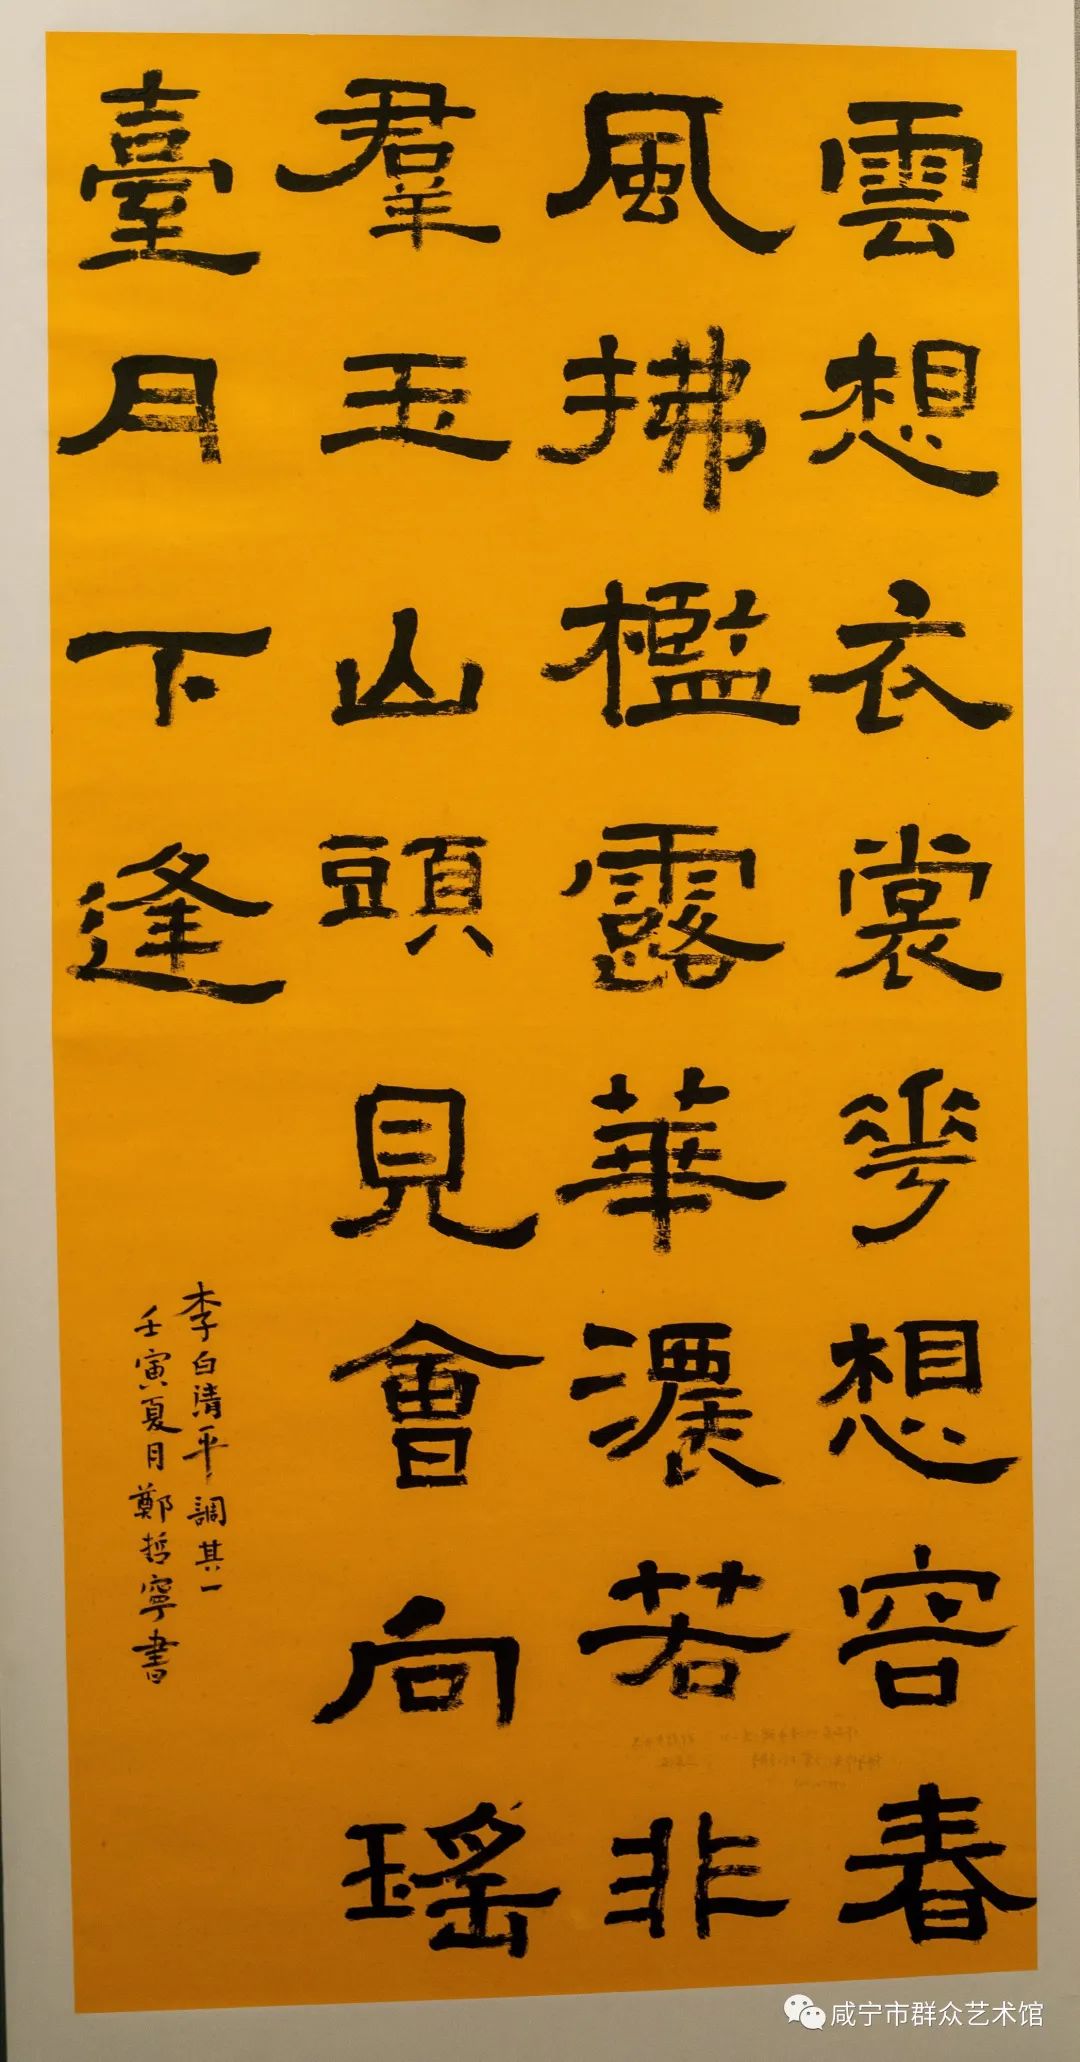 雲想衣裳花想容春
風拂檻露華濃若非
羣玉山頭見會向瑤
臺月下逢
李白清平調其一
壬寅夏月鄭哲寧書
咸宁市群众艺术馆